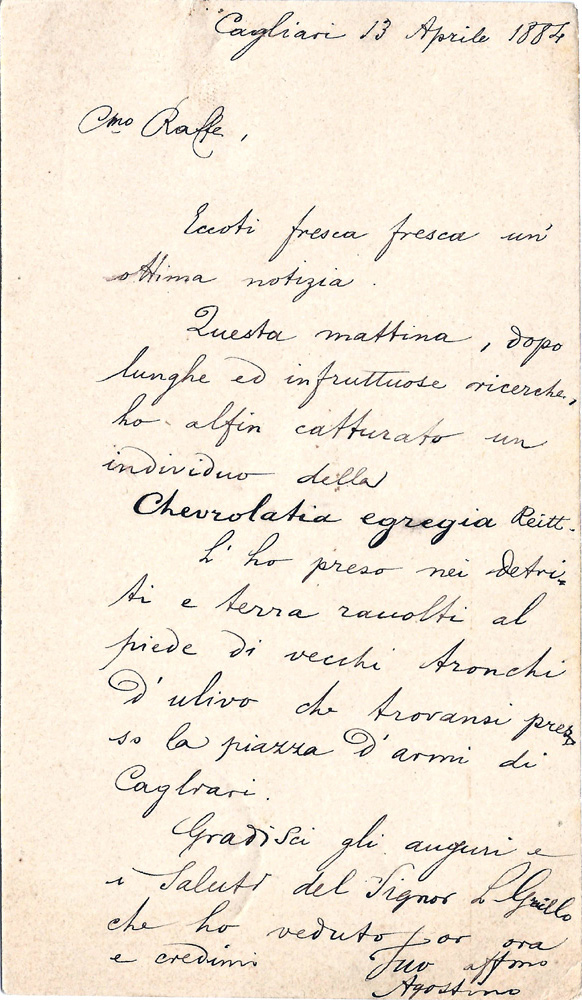 Cagliari 13 Aprile 1884
Cmo Raffe,
Eccoti fresca fresca un'
ottima notizia.
Questa mattina, dopo
lunghe ed infruttuose ricerche,
ho alfin catturato un
individuo della
Chevrolatia egregia Reitt.
L'ho preso nei detri-
ti e terra raccolti al
piede di vecchi tronchi
d'ulivo che trovansi pres-
so la piazza d'armi di
Cagliari.
Gradisci gli auguri e
i saluti del Signor L Grillo
che ho veduto or ora
e credimi Tuo affmo
Agostino